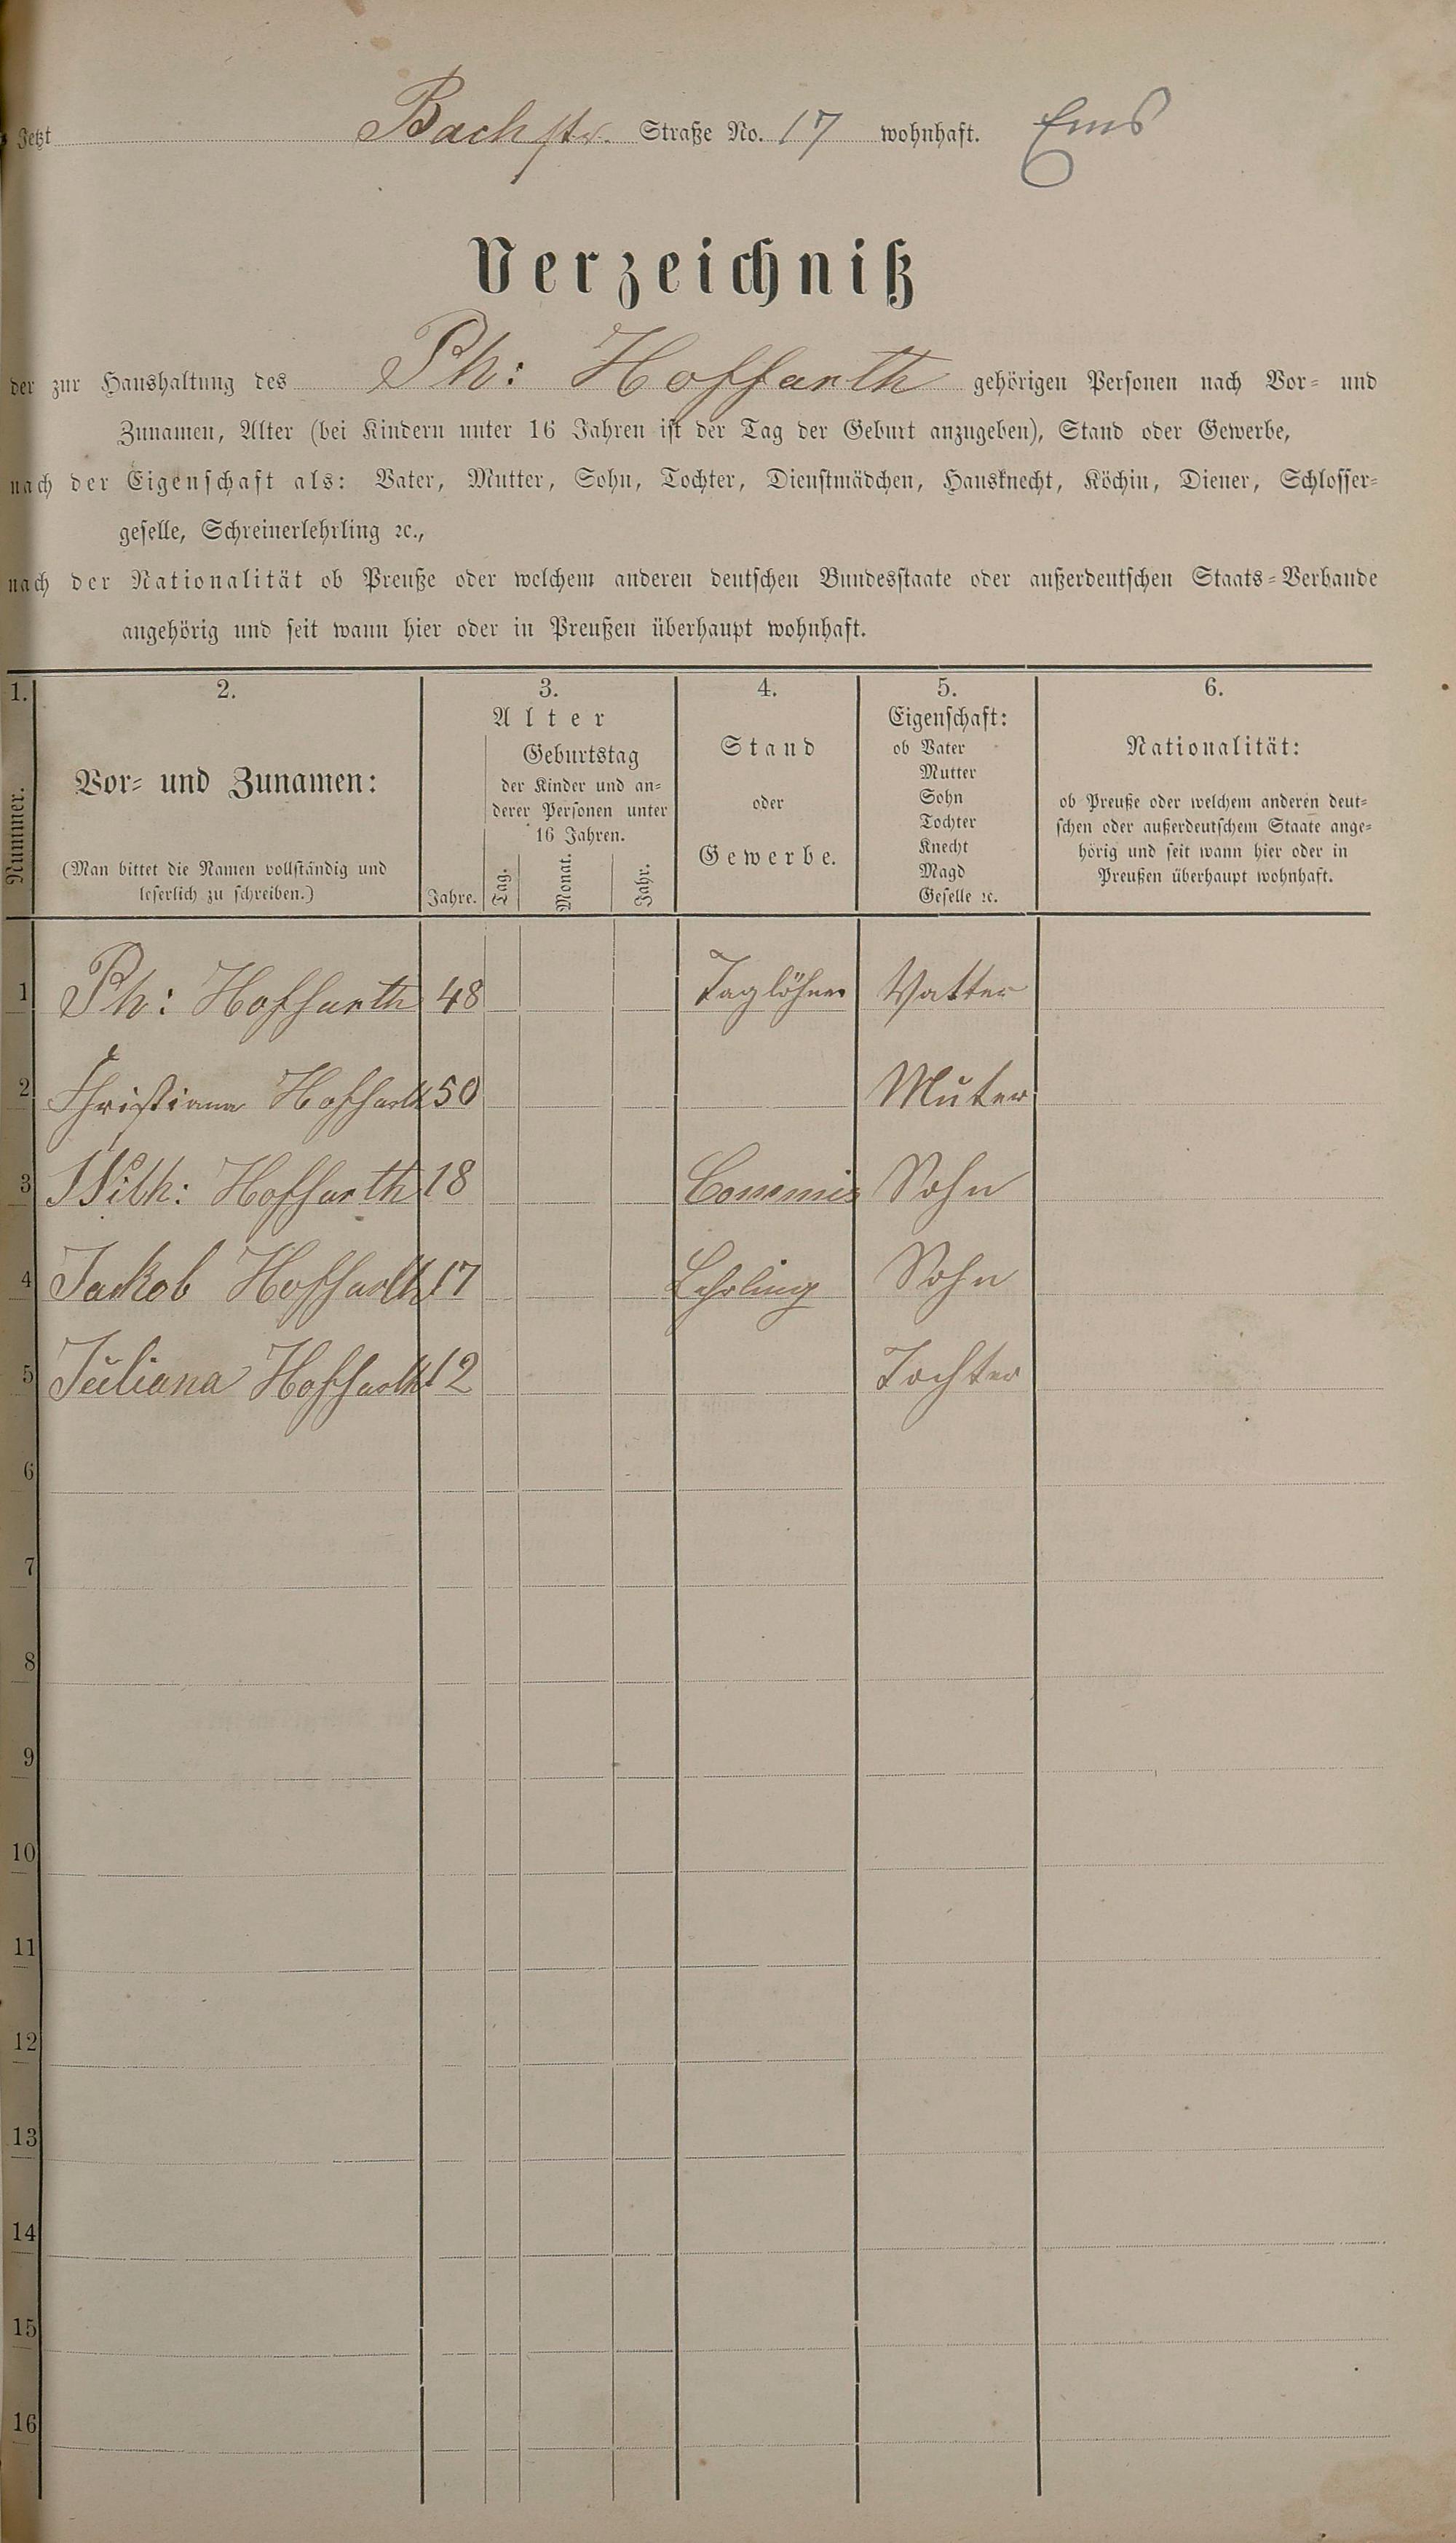 Jetzt Bachstr. Straße No. 17 wohnhaft. Ems
Verzeichniß
der zur Haushaltung des Ph: Hoffarth gehörigen Personen nach Vor- und
Zunamen, Alter (bei Kindern unter 16 Jahren ist der Tag der Geburt anzugeben), Stand oder Gewerbe,
nach der Eigenschaft als: Vater, Mutter, Sohn, Tochter, Dienstmädchen, Hausknecht, Köchin, Diener, Schlosser-
geselle, Schreinerlehrling ꝛc.,
nach der Nationalität ob Preuße oder welchem anderen deutschen Bundesstaate oder außerdeutschen Staats-Verbande
angehörig und seit wann hier oder in Preußen überhaupt wohnhaft.
1.
Nummer.
2.
Vor- und Zunamen:
(Man bittet die Namen vollständig und
leserlich zu schreiben.)
3.
Alter
Jahre.
Geburtstag
der Kinder und an-
derer Personen unter
16 Jahren.
Tag.
Monat.
Jahr.
4.
Stand
oder
Gewerbe.
5.
Eigenschaft:
ob Vater
Mutter
Sohn
Tochter
Knecht
Magd
Geselle ꝛc.
6.
Nationalität:
ob Preuße oder welchem anderen deut-
schen oder außerdeutschem Staate ange-
hörig und seit wann hier oder in
Preußen überhaupt wohnhaft.
1 Ph: Hoffarth 48 Taglöhner Vatter
2 Christiana Hoffarth 50 Muter
3 Wilh: Hoffarth 18 Commis Sohn
4 Jackob Hoffarth 17 Lehrling Sohn
5 Juliana Hoffarth 12 Tochter
6
7
8
9
10
11
12
13
14
15
16